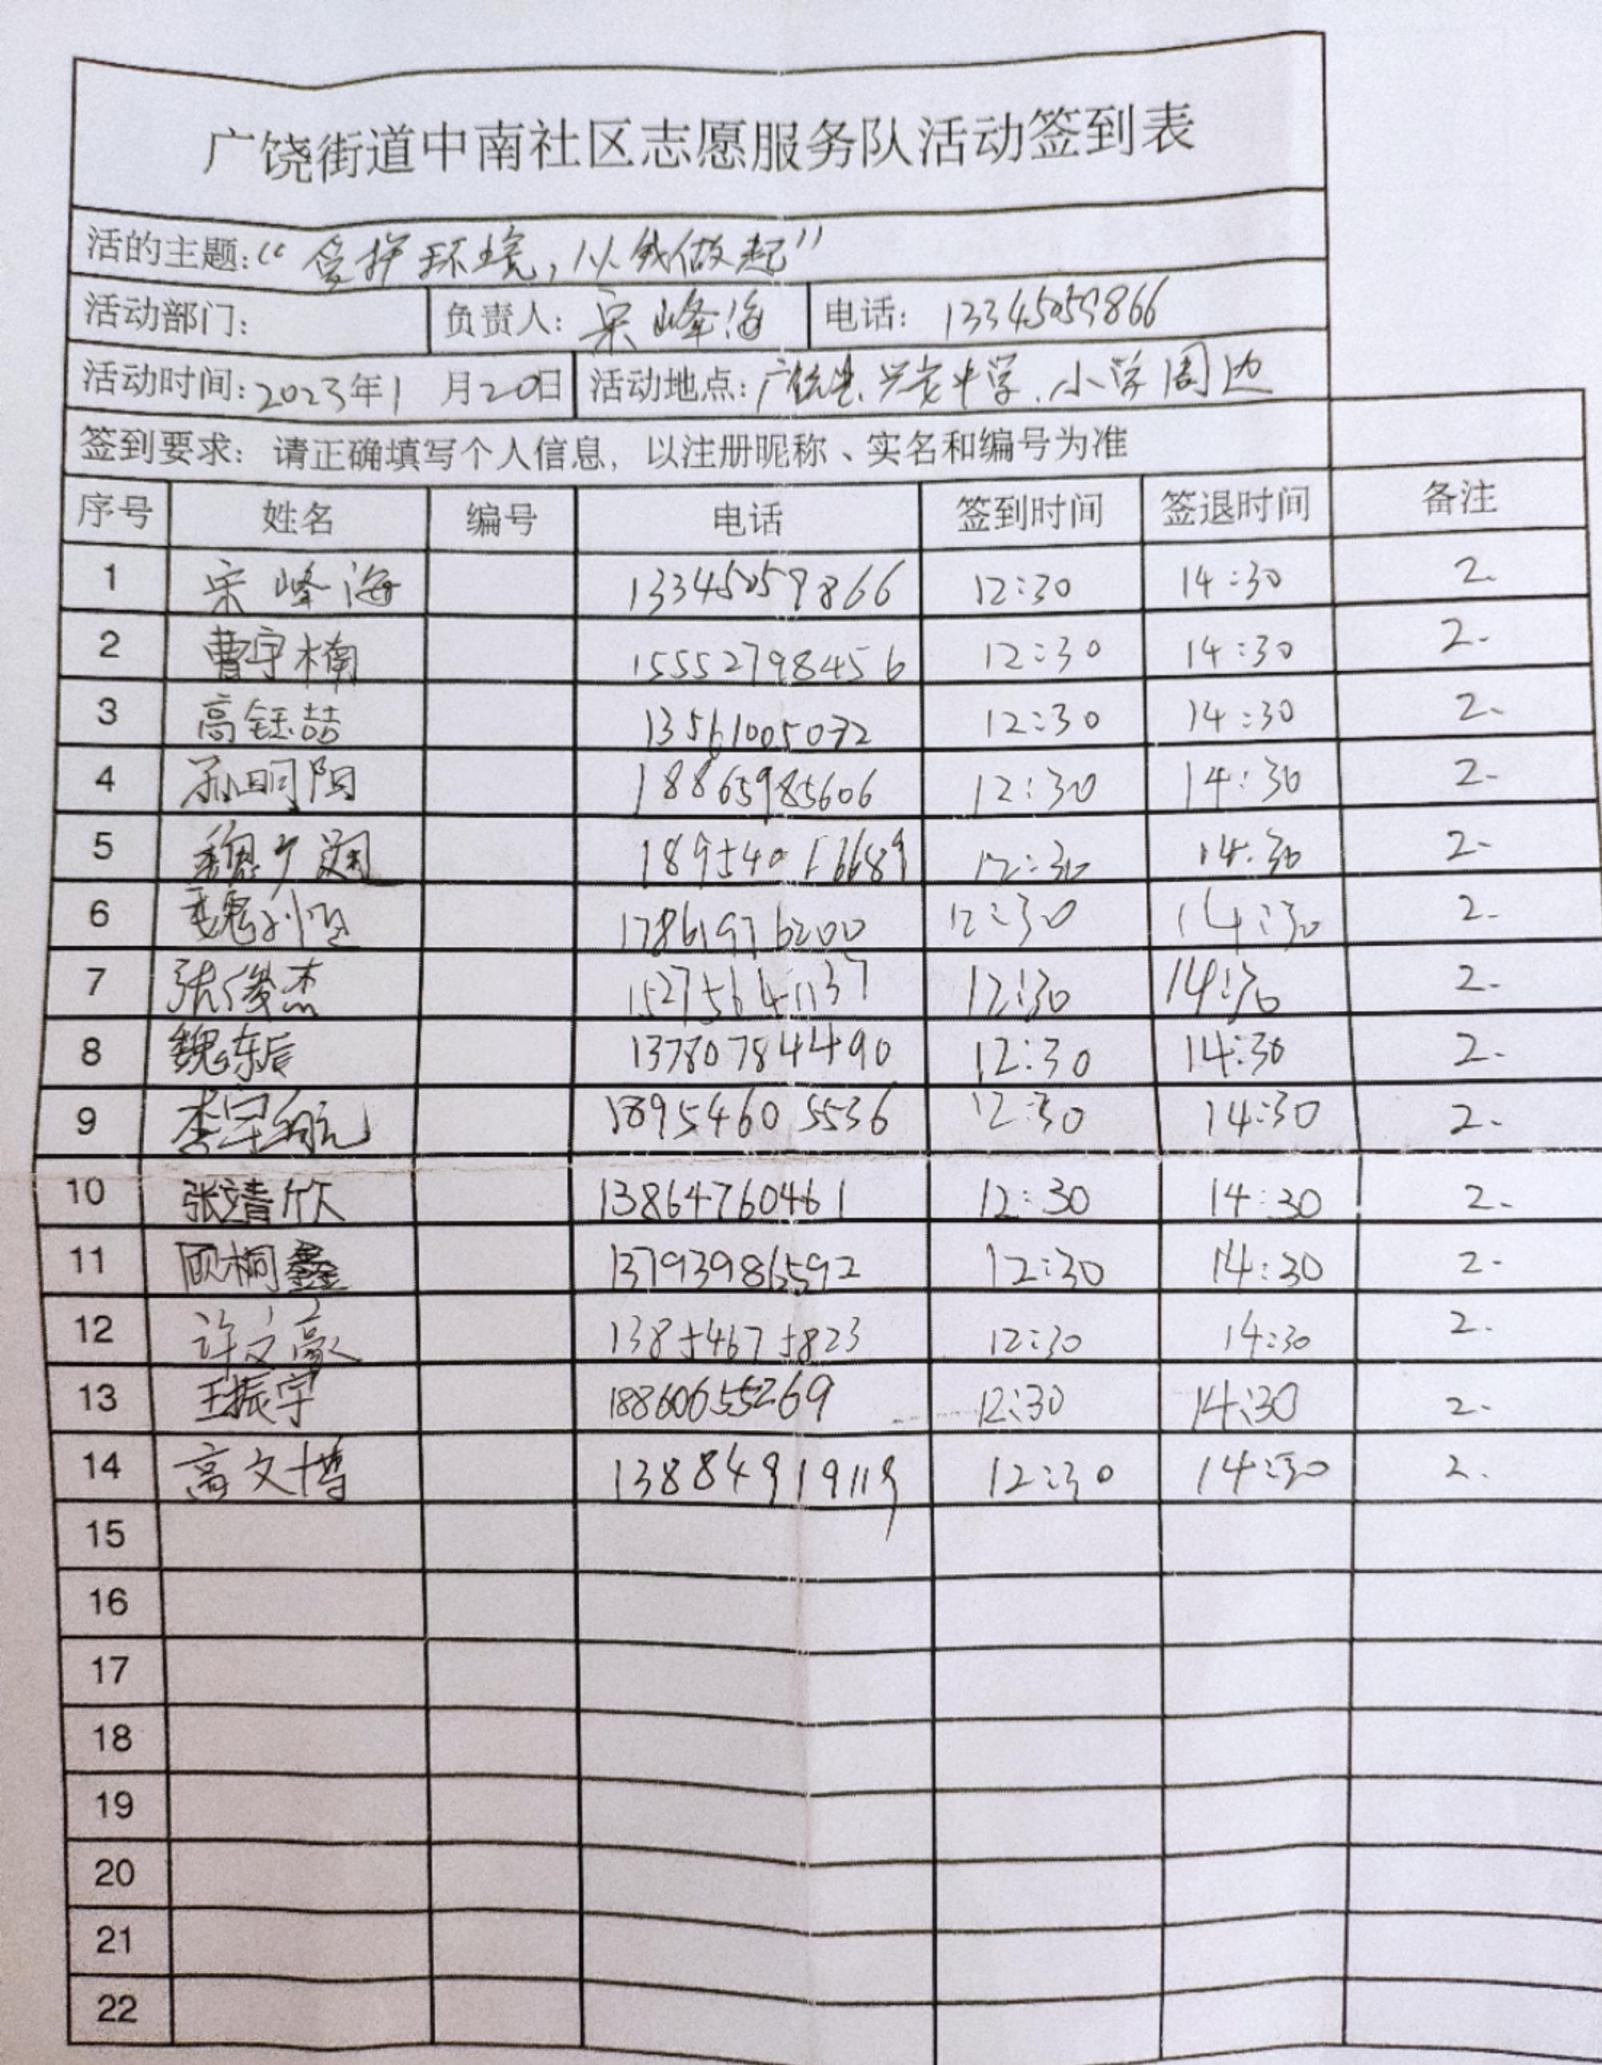 广饶街道中南社区志愿服务队活动签到表
活的主题:“爱护环境,从我做起”
活动部门: 负责人: 宋峰海 电话: 13345059866
活动时间:2023年1 月20日 活动地点: 中学、小学周边
签到要求: 请正确填写个人信息, 以注册昵称、实名和编号为准
序号 姓名 编号 电话 签到时间 签退时间 备注
1 宋峰海 13345059866 12:30 14:30 2.
2 曹宇楠 15552798456 12:30 14:30 2.
3 高钰喆 13561005072 12:30 14:30 2.
4 孙明阳 18865985606 12:30 14:30 2.
5 魏广 12:30 14:30 2.
6 魏 17861976200 12:30 14:30 2.
7 张俊杰 15275641137 12:30 14:30 2.
8 魏东后 13780784490 12:30 14:30 2.
9 李宇航 18954605536 12:30 14:30 2.
10 张靖欣 13864760461 12:30 14:30 2.
11 顾桐鑫 13793986592 12:30 14:30 2.
12 许文豪 13854675823 12:30 14:30 2.
13 王振宇 18860655269 12:30 14:30 2.
14 高文博 13884919119 12:30 14:30 2.
15
16
17
18
19
20
21
22